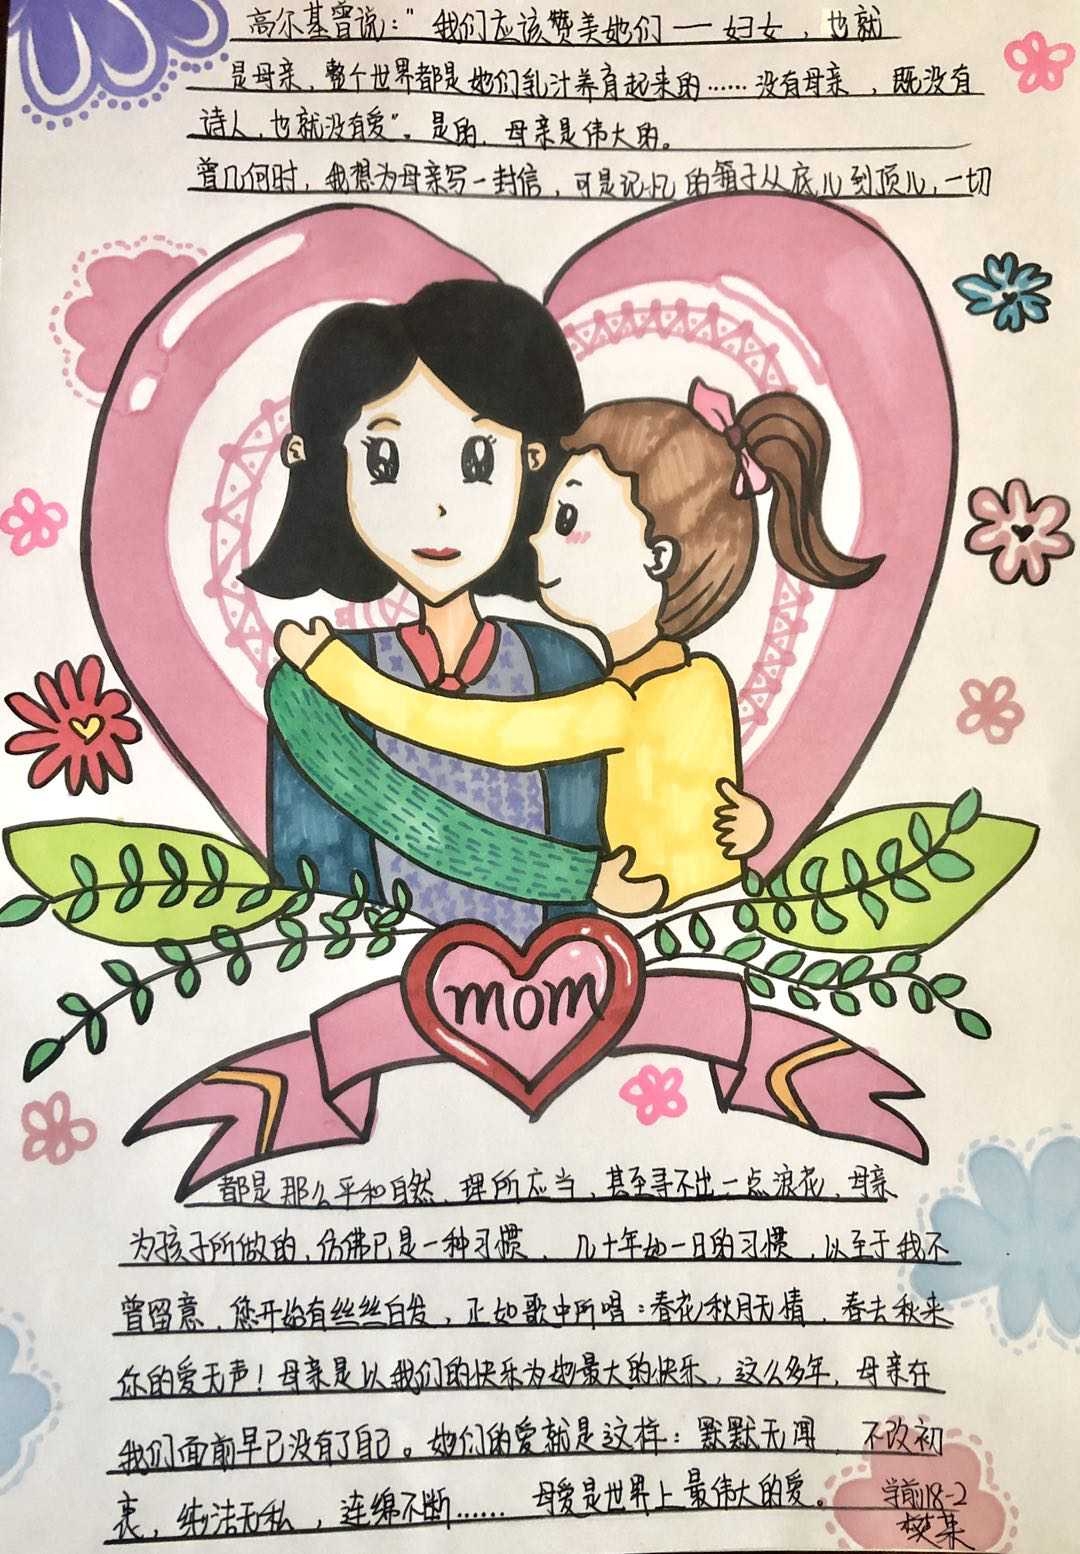 高尔基曾说："我们应该赞美她们——妇女，也就
是母亲，整个世界都是她们乳汁养育起来的……没有母亲，既没有
诗人，也就没有爱"。是的，母亲是伟大的。
曾几何时，我想为母亲写一封信，可是记忆的箱子从底儿到顶儿，一切
mom
都是那么平和自然，理所应当，甚至寻不出一点浪花，母亲
为孩子所做的，仿佛已是一种习惯，几十年如一日的习惯，以至于我不
曾留意，您开始有丝丝白发，正如歌中所唱：春花秋月无情，春去秋来
你的爱无声！母亲是以我们的快乐为她最大的快乐，这么多年，母亲在
我们面前早已没有了自己。她们的爱就是这样：默默无闻，不改初
衷，纯洁无私，连绵不断……母爱是世界上最伟大的爱。
学前18-2
樊某